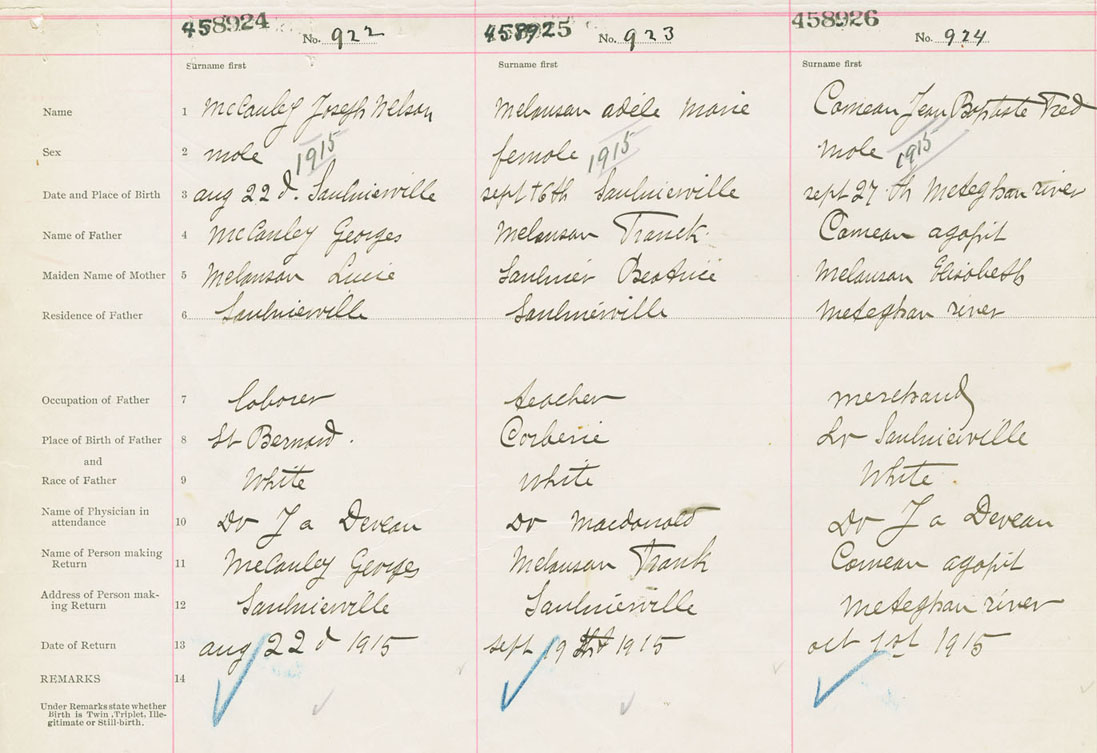 458924 No. 922 458925 No. 923 458926 No. 924
Surname first Surname first Surname first
Name 1 McCauley Joseph Nelson Melanson adèle Marie Comeau Jean Baptiste Fred
Sex 2 male 1915 female 1915 male 1915
Date and Place of Birth 3 aug 22d. Saulnierville sept 16th Saulnierville sept 27th Meteghan river
Name of Father 4 McCauley Georges Melanson Franck Comeau agapit
Maiden Name of Mother 5 Melanson Lucie Saulnier Beatrice Melanson Elisabeth
Residence of Father 6 Saulnierville Saulnierville Meteghan river
Occupation of Father 7 laborer teacher merchand
Place of Birth of Father 8 St Bernard. Corberie Lr Saulnierville
and
Race of Father 9 White white White
Name of Physician in
attendance 10 Dr J a Deveau Dr Macdonald Dr J a Deveau
Name of Person making
Return 11 McCauley Georges Melanson Frank Comeau agapit
Address of Person mak-
ing Return 12 Saulnierville Saulnierville Meteghan river
Date of Return 13 aug 22d 1915 sept 19th 1915 oct 1st 1915
REMARKS 14
Under Remarks state whether
Birth is Twin, Triplet, Ille-
gitimate or Still-birth.